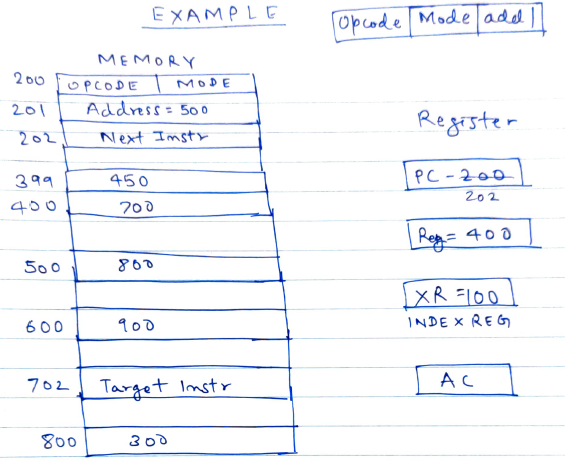 EXAMPLE
Opcode Mode add
MEMORY
200 OPCODE MODE
201 Address = 500
202 Next Instr
399 450
400 700
500 800
600 900
702 Target Instr
800 300
Register
PC - 200
202
Reg = 400
XR = 100
INDEX REG
AC